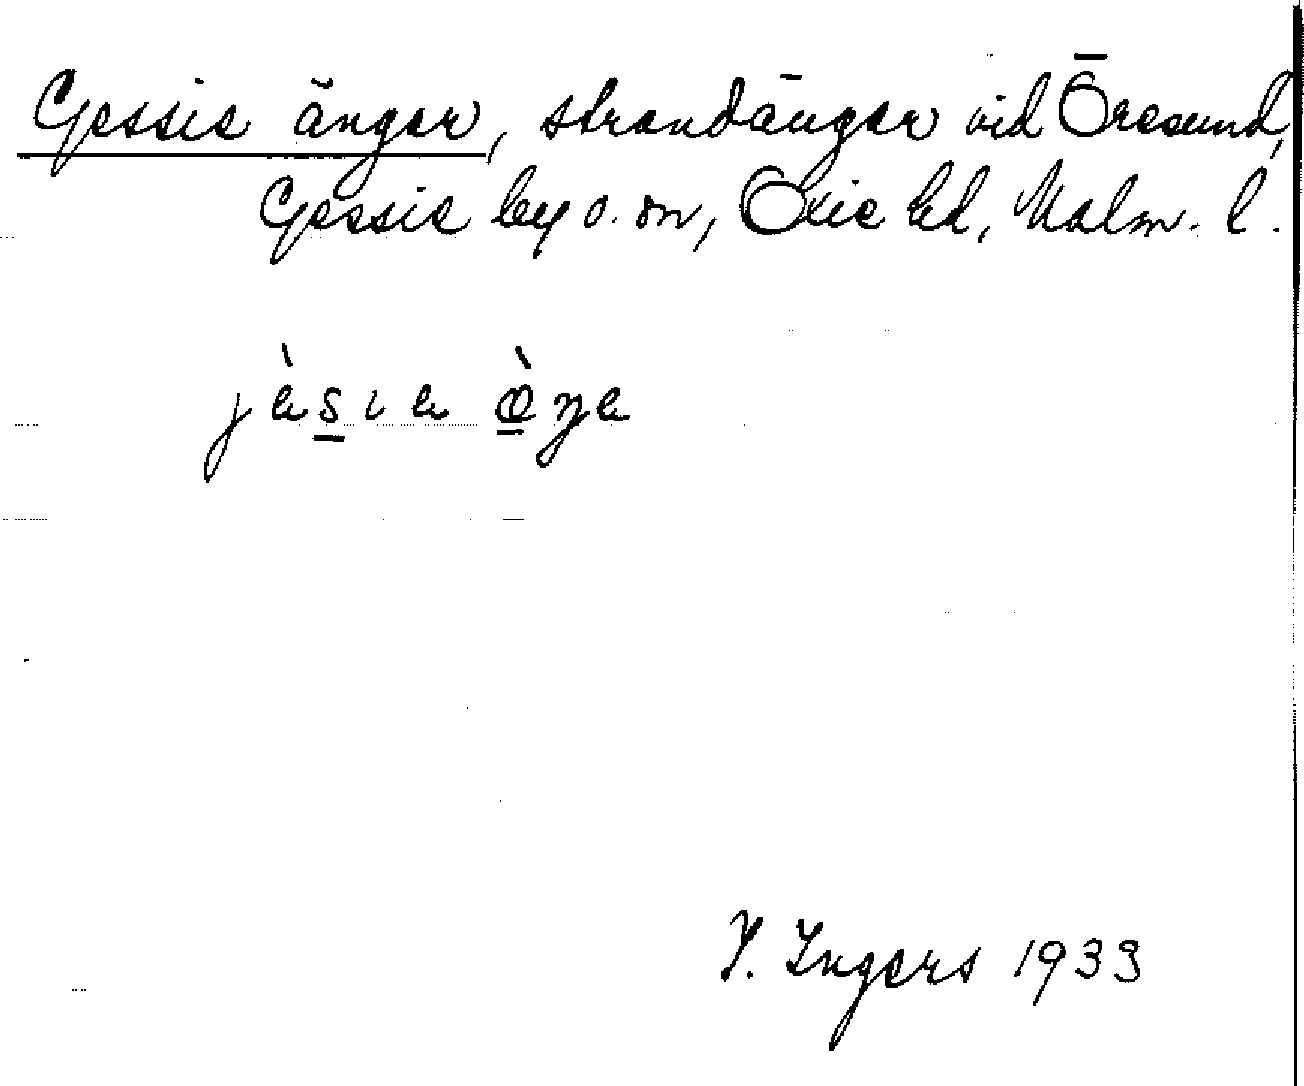 Gessie ängar, strandängar vid Öresund,
Gessie by o. sn, Oxie hd, Malm. l.
jèsıe øŋe
I. Ingers 1933